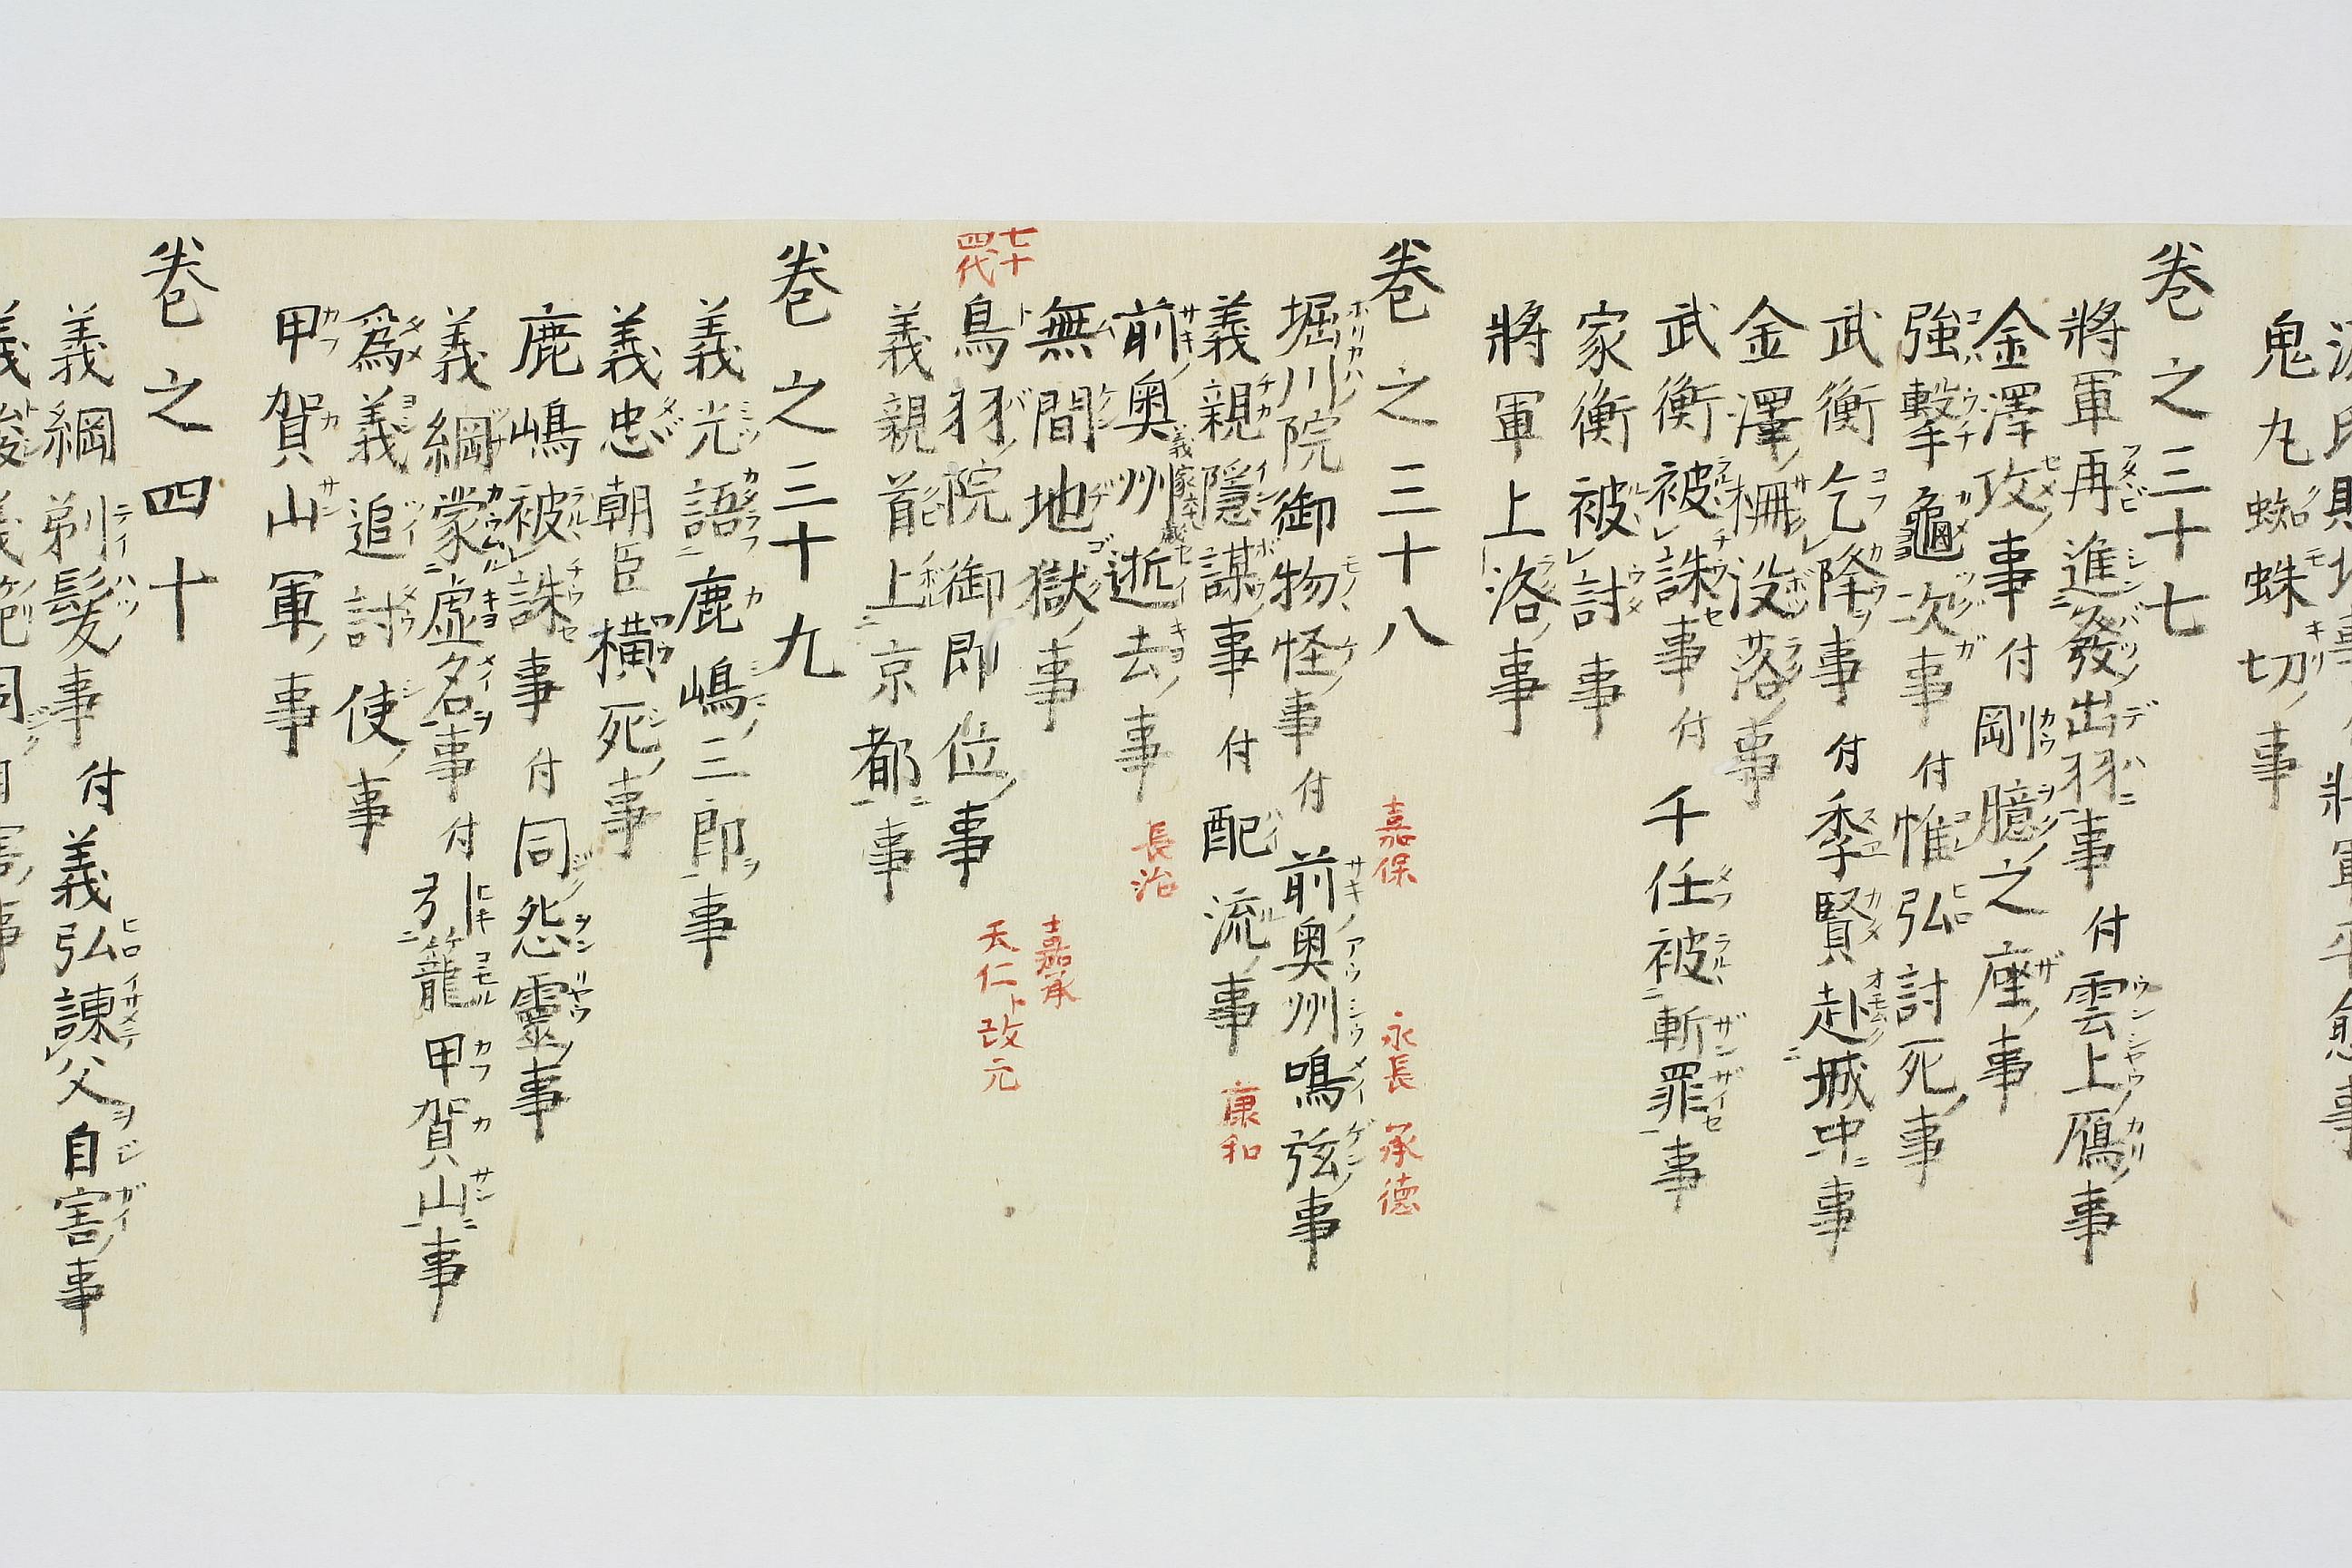 鬼丸蜘蛛切事
卷之三十七
將軍再進發出羽事付雲上鴈事
金澤攻事付剛臆之座事
強撃龜次事付惟弘討死事
武衡乞降事付季賢赴城中事
金澤柵没落事
武衡被誅事付千任被斬罪事
家衡被討事
將軍上洛事
卷之三十八 嘉保 永長 承德
堀川院御物怪事付前奥州鳴弦事
義親隱謀事付配流事 康和
前奥州義家逝去事 長治
無間地獄事 嘉承
七十四代鳥羽院御即位事 天仁ト改元
義親首上京都事
卷之三十九
義光語鹿嶋三郎事
義忠朝臣橫死事
鹿嶋被誅事付同怨靈事
義綱蒙虛名事付引籠甲賀山事
爲義追討使事
甲賀山軍事
卷之四十
義綱剃髮事付義弘諫父自害事